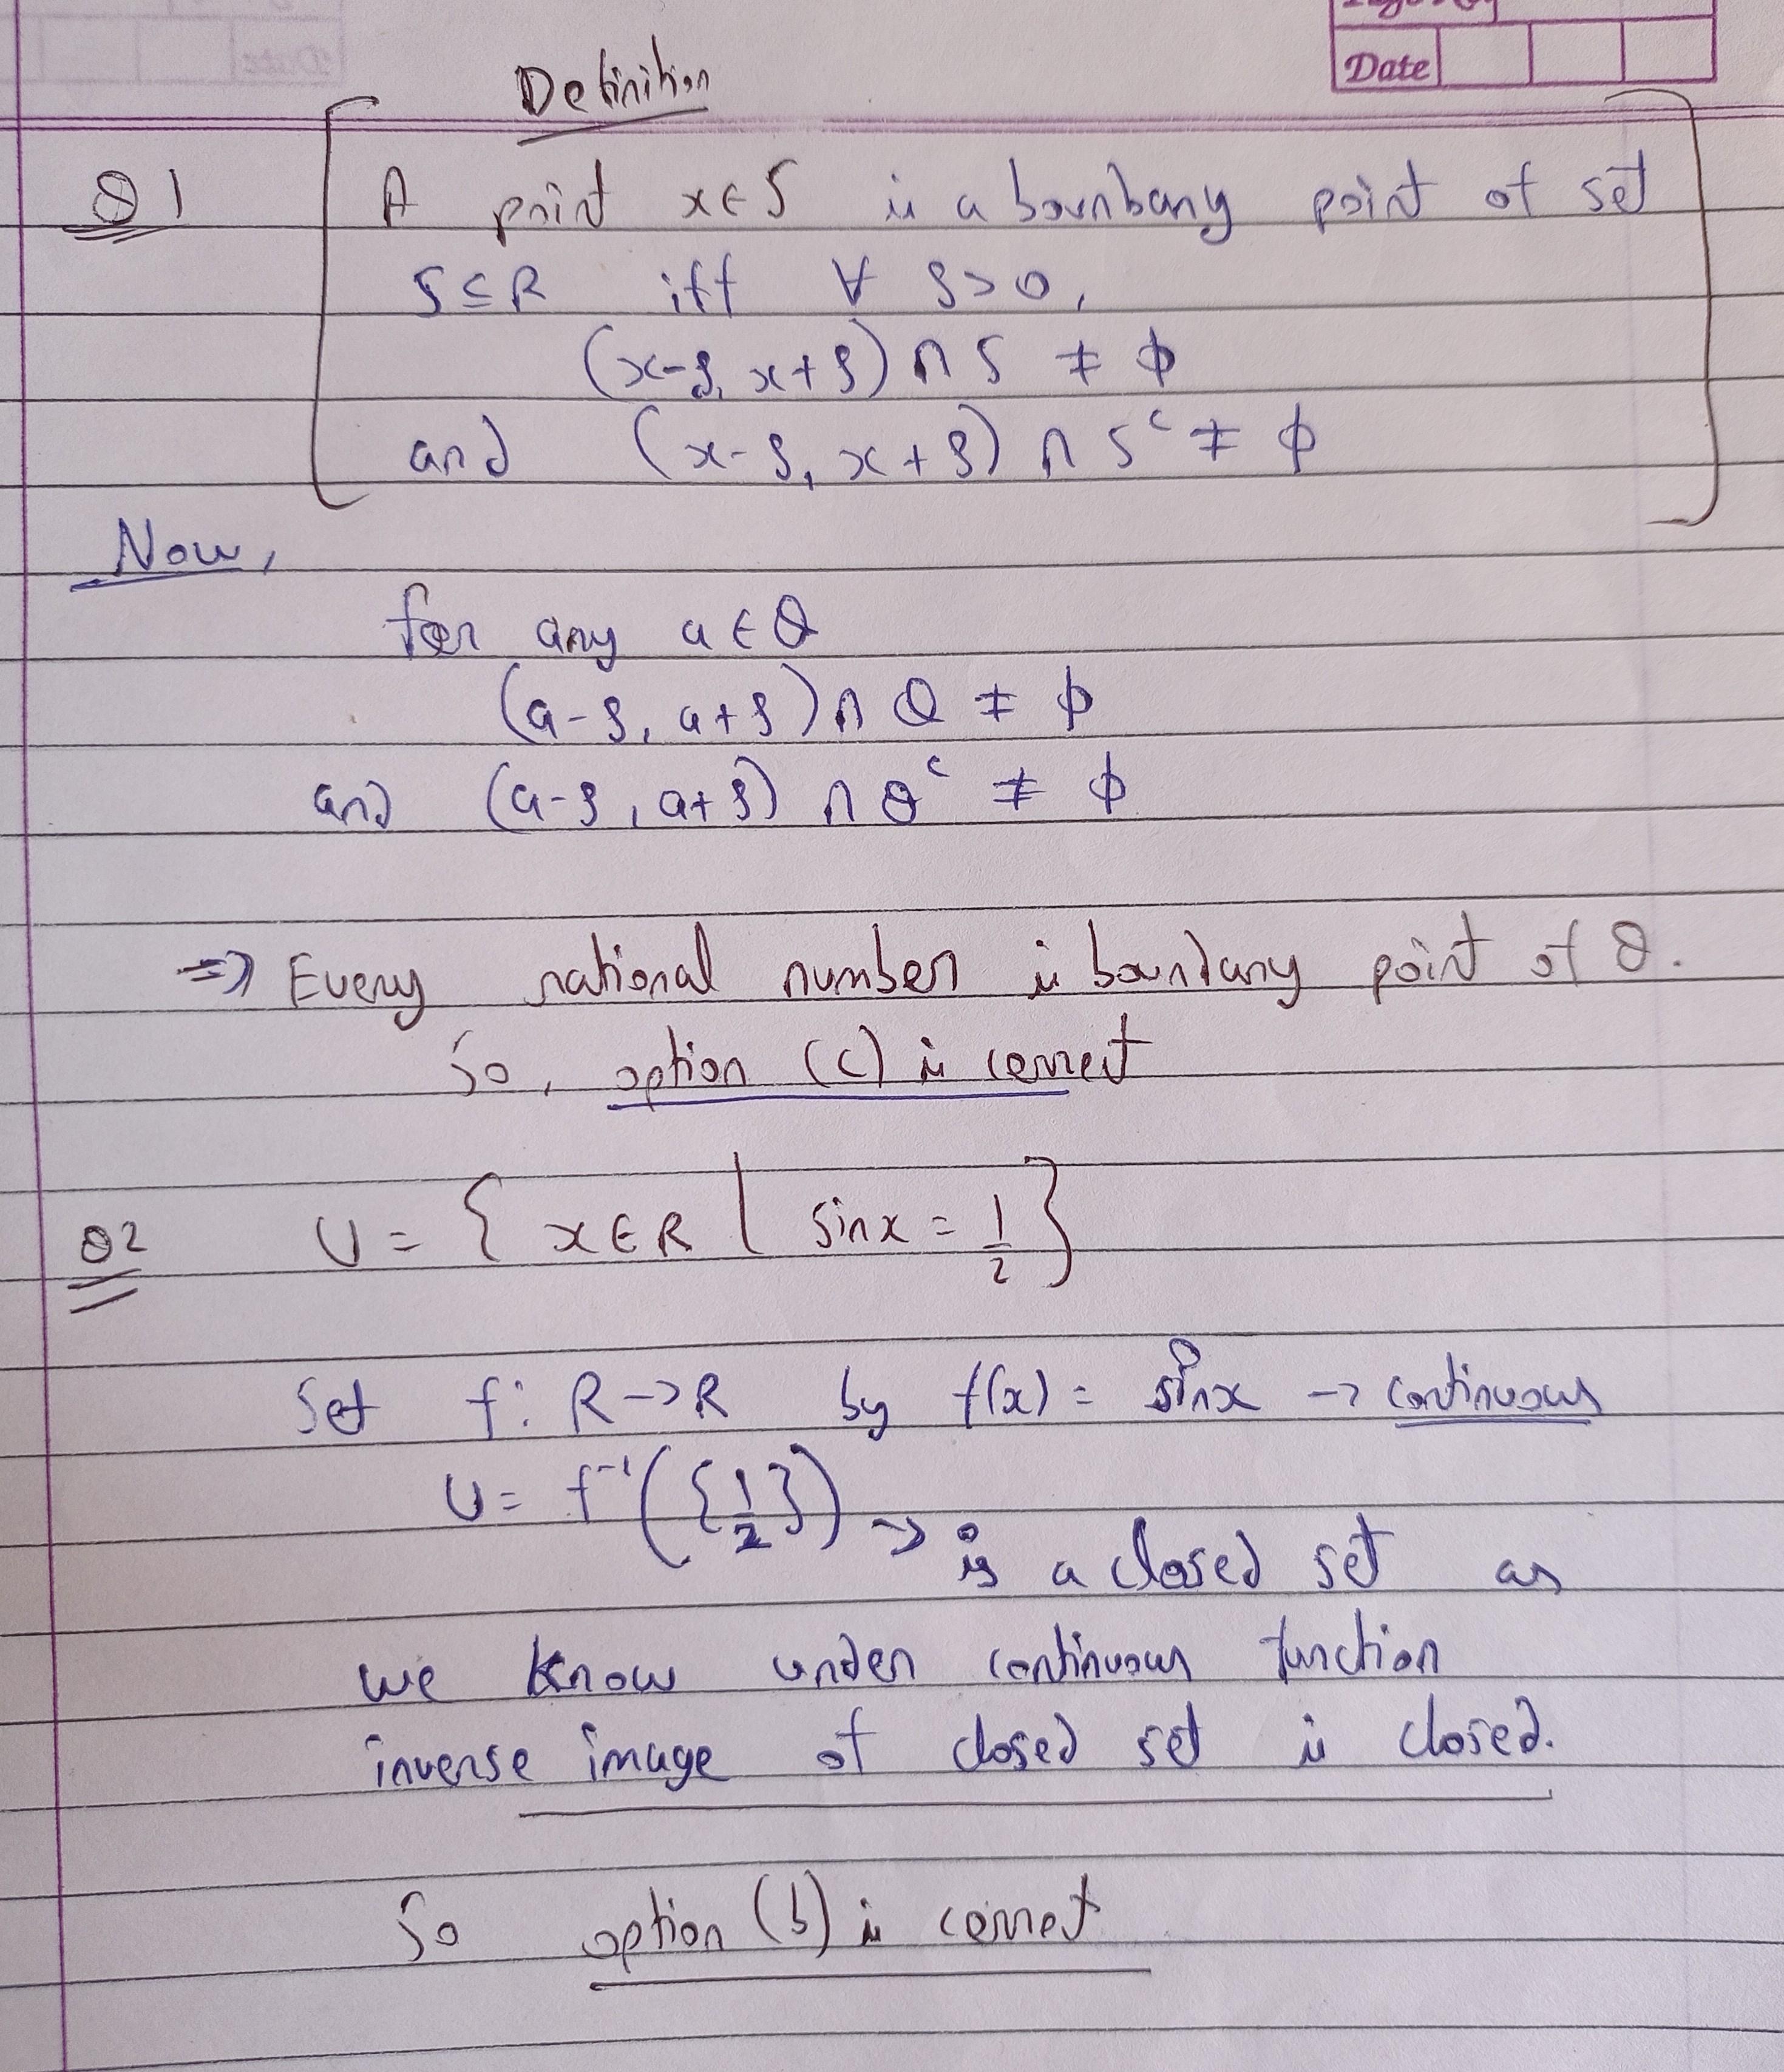 Date
Definition
Q1 A point x∈S is a bounbary point of set
S⊆R iff ∀ δ>0,
(x-δ, x+δ) ∩ S ≠ ϕ
and (x-δ, x+δ) ∩ Sᶜ ≠ ϕ
Now,
for any a∈Q
(a-δ, a+δ) ∩ Q ≠ ϕ
and (a-δ, a+δ) ∩ Qᶜ ≠ ϕ
=> Every rational number is boundary point of Q.
So, option (c) is correct
Q2 U = { x∈R | sinx = 1/2 }
Set f: R->R by f(x) = sinx -> continuous
U = f⁻¹({1/2}) -> is a closed set as
we know under continuous function
inverse image of closed set is closed.
So option (b) is correct